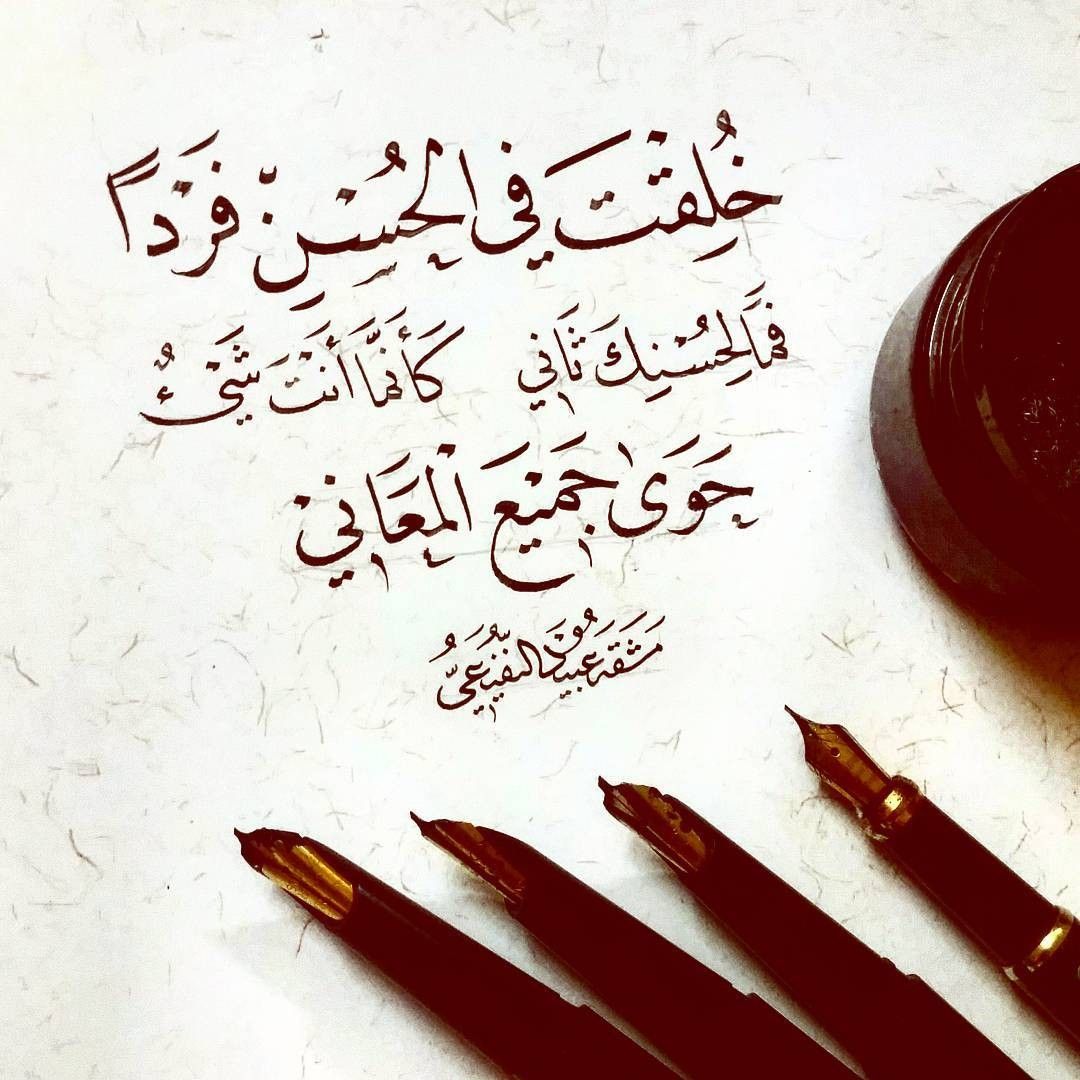 خُلِقْتَ في الحُسْنِ فَرْداً
فَمَا لِحُسْنِكَ ثَاني كَأَنَّمَا أَنْتَ شَيْءٌ
حَوَى جَمِيْعَ الْمَعَانِيْ
مَشَقَهُ عَبيدُ النفيعي